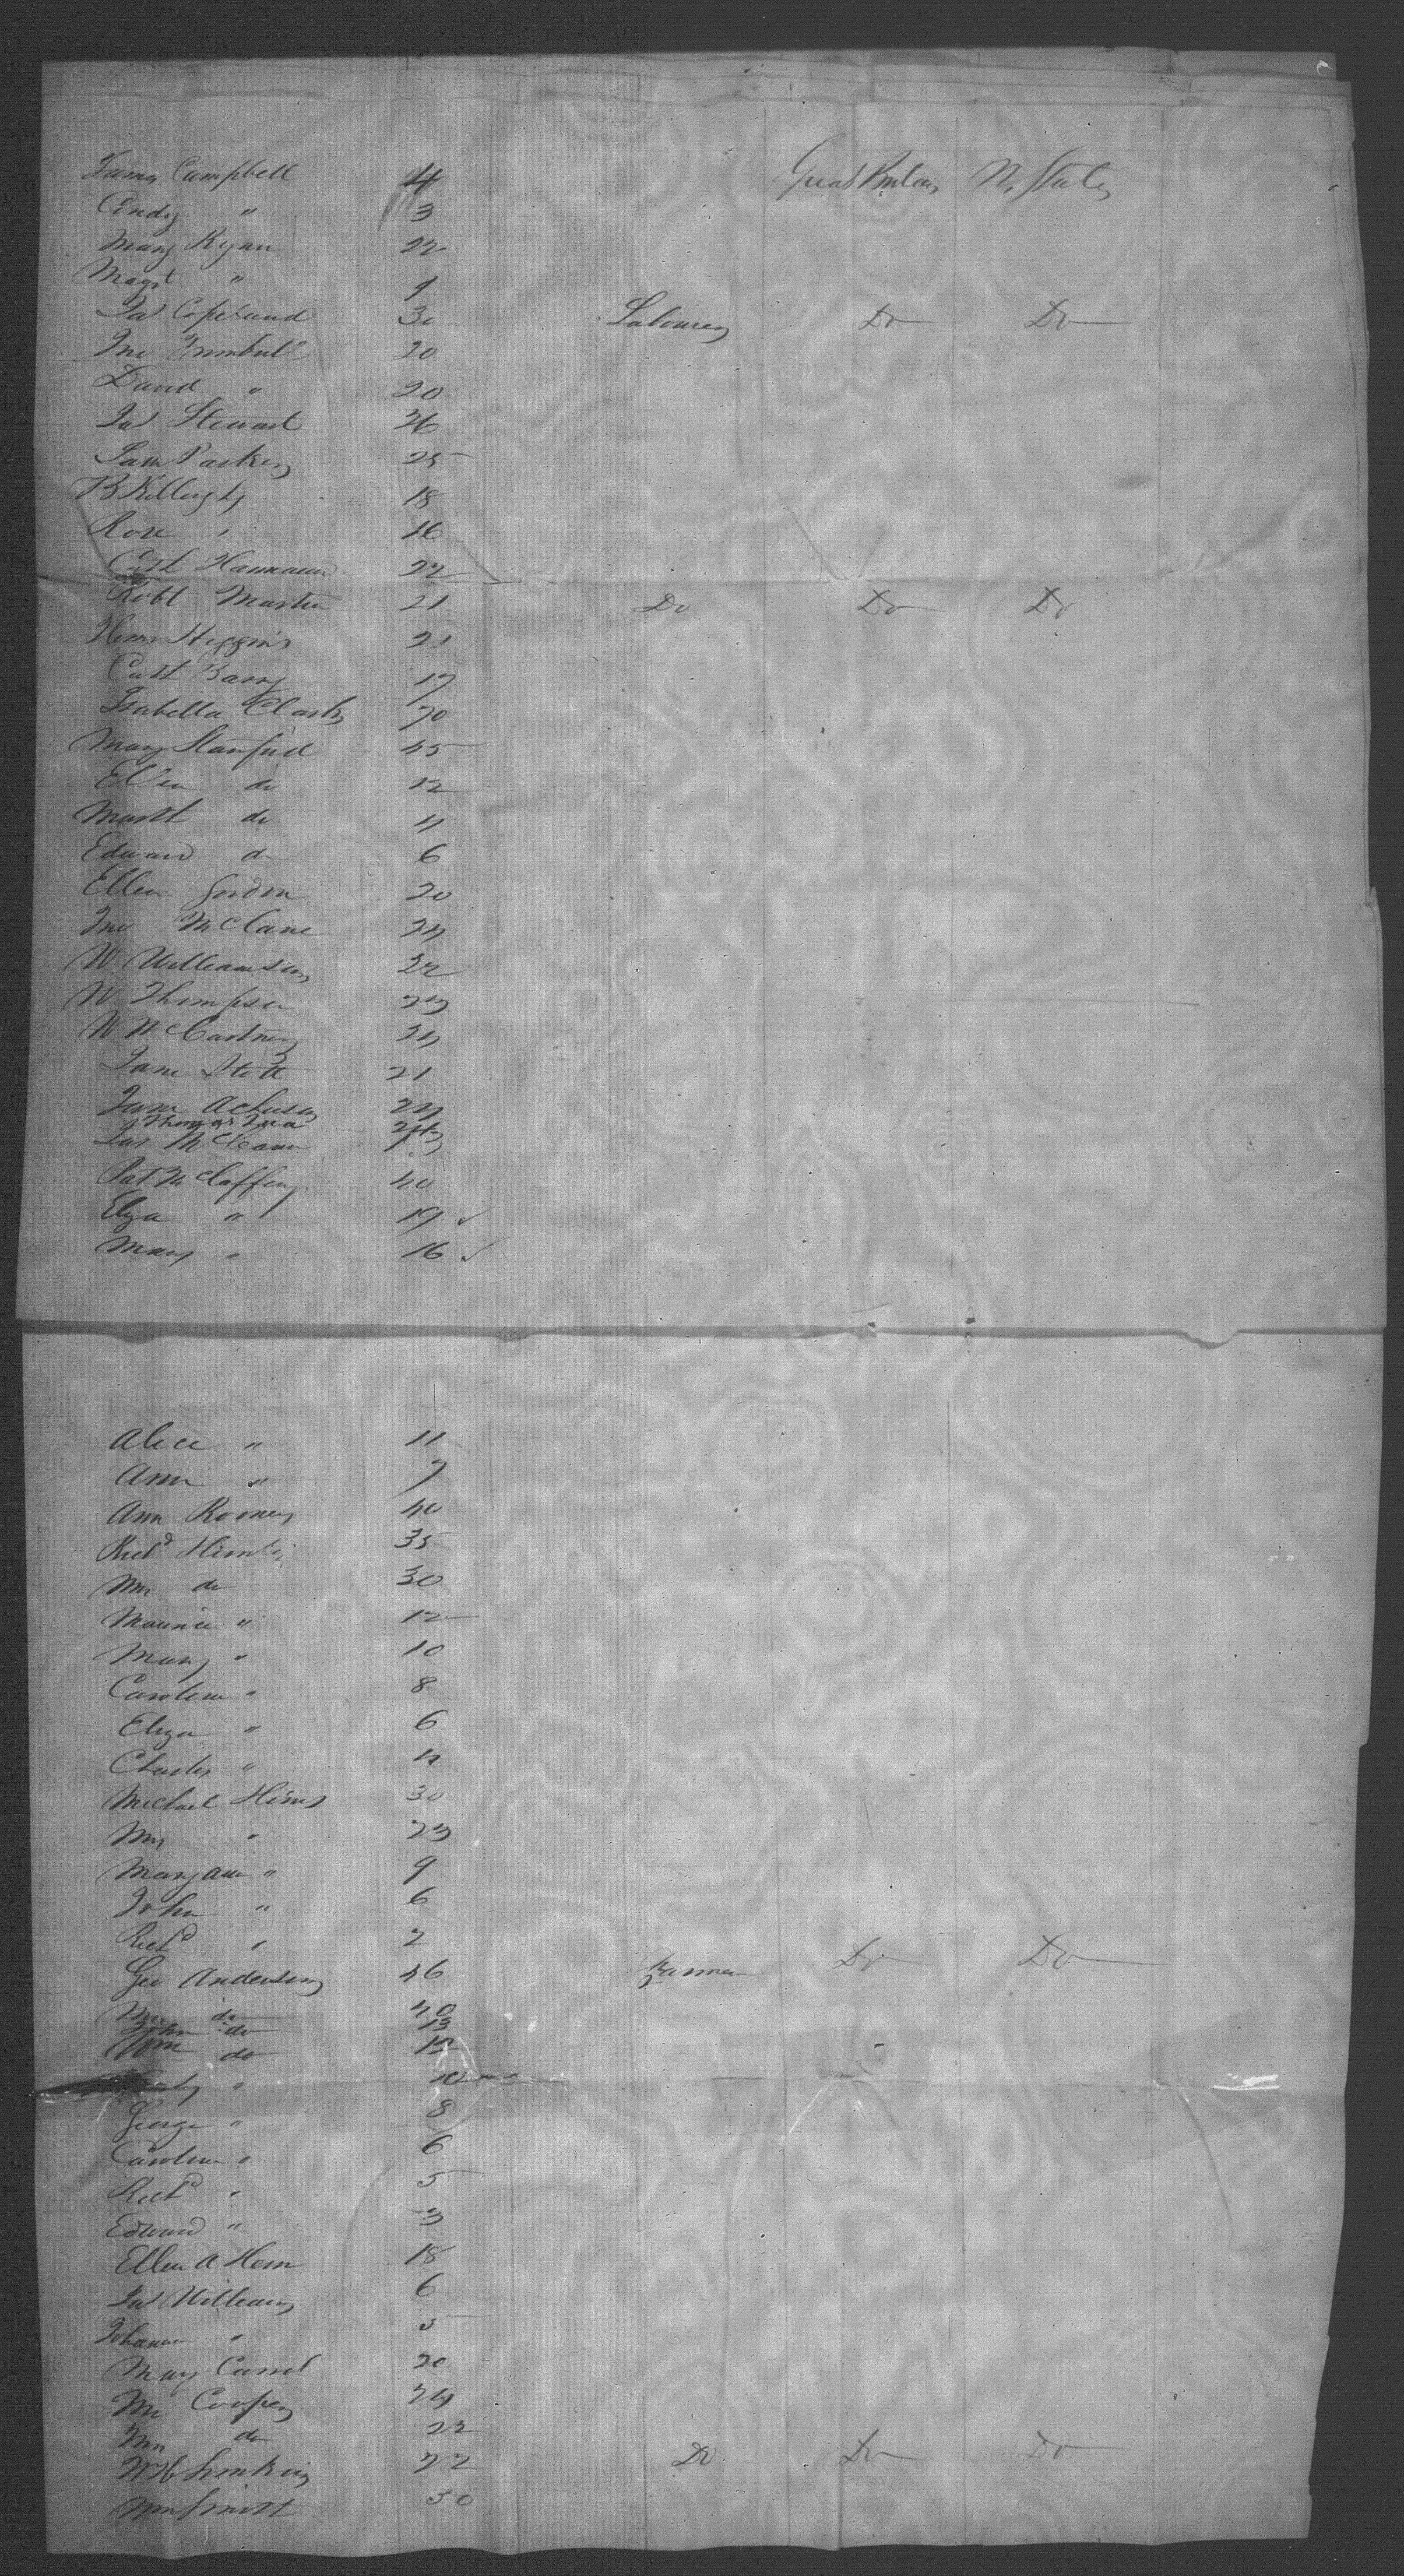 James Campbell 4 Great Britain U. States
Cindy " 3
Mary Ryan 22
Magt " 9
Jas Copeland 30 Labourer Do Do
Jno Trimbull 20
David " 20
Jas Stewart 26
Sam Parker 25
B Killughy 18
Rose " 16
Cath Hannaun 22
Robt Martin 21 Do Do Do
Henry Higgins 21
Cath Barry 17
Isabella Clark 70
Mary Stanford 45
Ellen do 12
Martt do 4
Edward do 6
Ellen Gordon 20
Jno McClane 24
W Williamson 22
W Thompson 23
W McCartney 24
Jane Stott 21
Jane 24
Thomas
Jas McCann
Pat McClaffery 40
Elyza " 19
Mary " 16
Alice " 11
Ann " 7
Ann Rooney 40
Richd 35
Mrs do 30
Maurice " 12
Mary " 10
Caroline " 8
Eliza " 6
Charles " 4
Michael Hines 30
Mrs " 23
Mary Ann " 9
John " 6
Richd " 2
Geo Anderson 46 Farmer Do Do
Mrs do 40
John do 13
Wm do 12
" 10
George " 8
Caroline " 6
Richd " 5
Edward " 3
Ellen A Horn 18
Jas Williams 6
Johanna " 5
Mary Carrol 20
Mr Cooper 24
Mrs do 22
W H Simkins 22 Do Do Do
Wm Smith 50